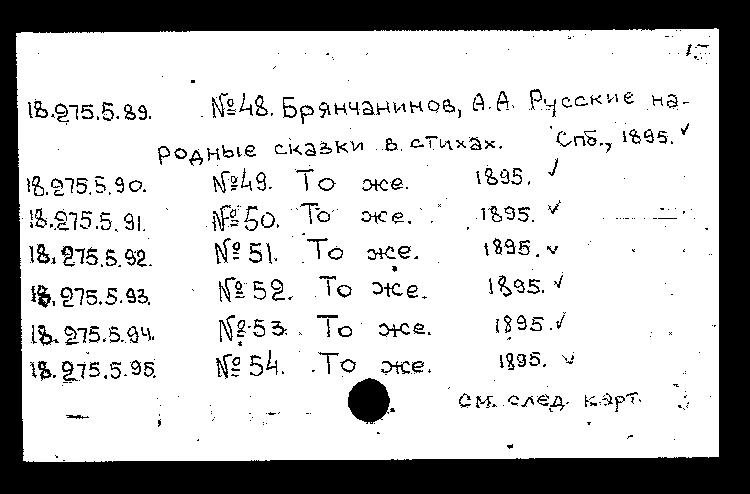 15
18.275.5.89. №48. Брянчанинов, А.А. Русские на-
родные сказки в стихах. Спб., 1895. ✓
18.275.5.90. №49. То же. 1895. ✓
18.275.5.91. №50. То же. 1895. ✓
18.275.5.92. №51. То же. 1895. ✓
18.275.5.93. №52. То же. 1895. ✓
18.275.5.94. №53. То же. 1895. ✓
18.275.5.95. №54. То же. 1895. ✓
см. след. карт.